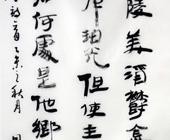 陵美酒鬱
珀光但使主
知何處是他鄉
首乙未之秋月